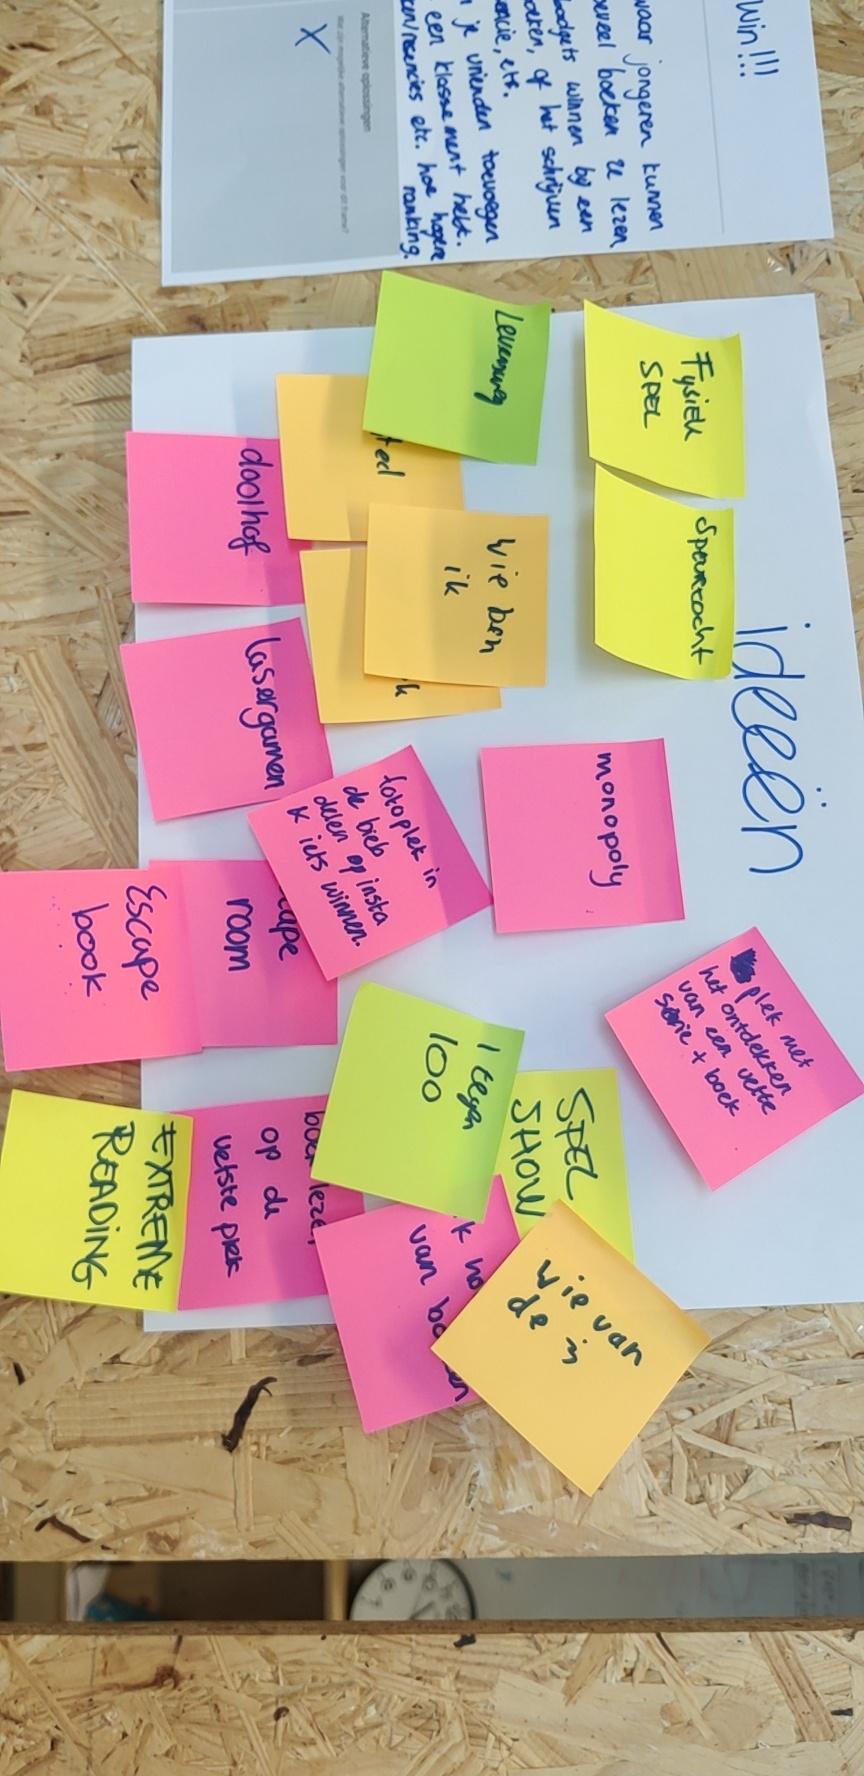 Win!!!
waar jongeren kunnen
boeken te lezen
badgets winnen bij een
of het schrijven
ets.
je vrienden toevoegen
een klassement hebt.
etc. hoe hogere
ranking.
Alternatieve oplossingen
Wat zijn mogelijke alternatieve oplossingen voor dit frame?
X
ideeën
Fysiek
SPEL
Speurtocht
monopoly
plek met
het ontdekken
van een vette
serie + boek
SPEL
SHOW
Wie van
de 3
Levensweg
Wie ben
ik
1 tegen
100
van
fotoplek in
de bieb
delen op insta
& iets winnen.
doolhof
lasergamen
room
op de
vetste plek
Escape
book
EXTREME
READING